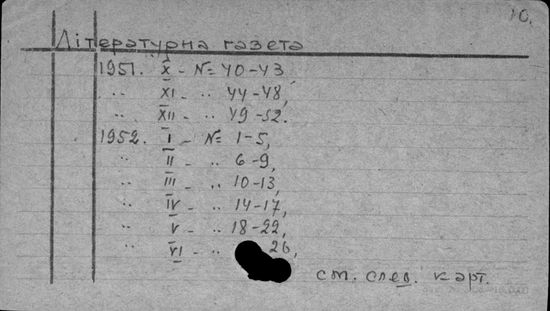 10.
Літературна газета
1951. X - № 40-43
" XI - " 44-48,
" XII - " 49-52.
1952. I - № 1-5,
" II - " 6-9,
" III - " 10-13,
" IV - " 14-17,
" V - " 18-22,
" VI - " 26,
см. след. карт.